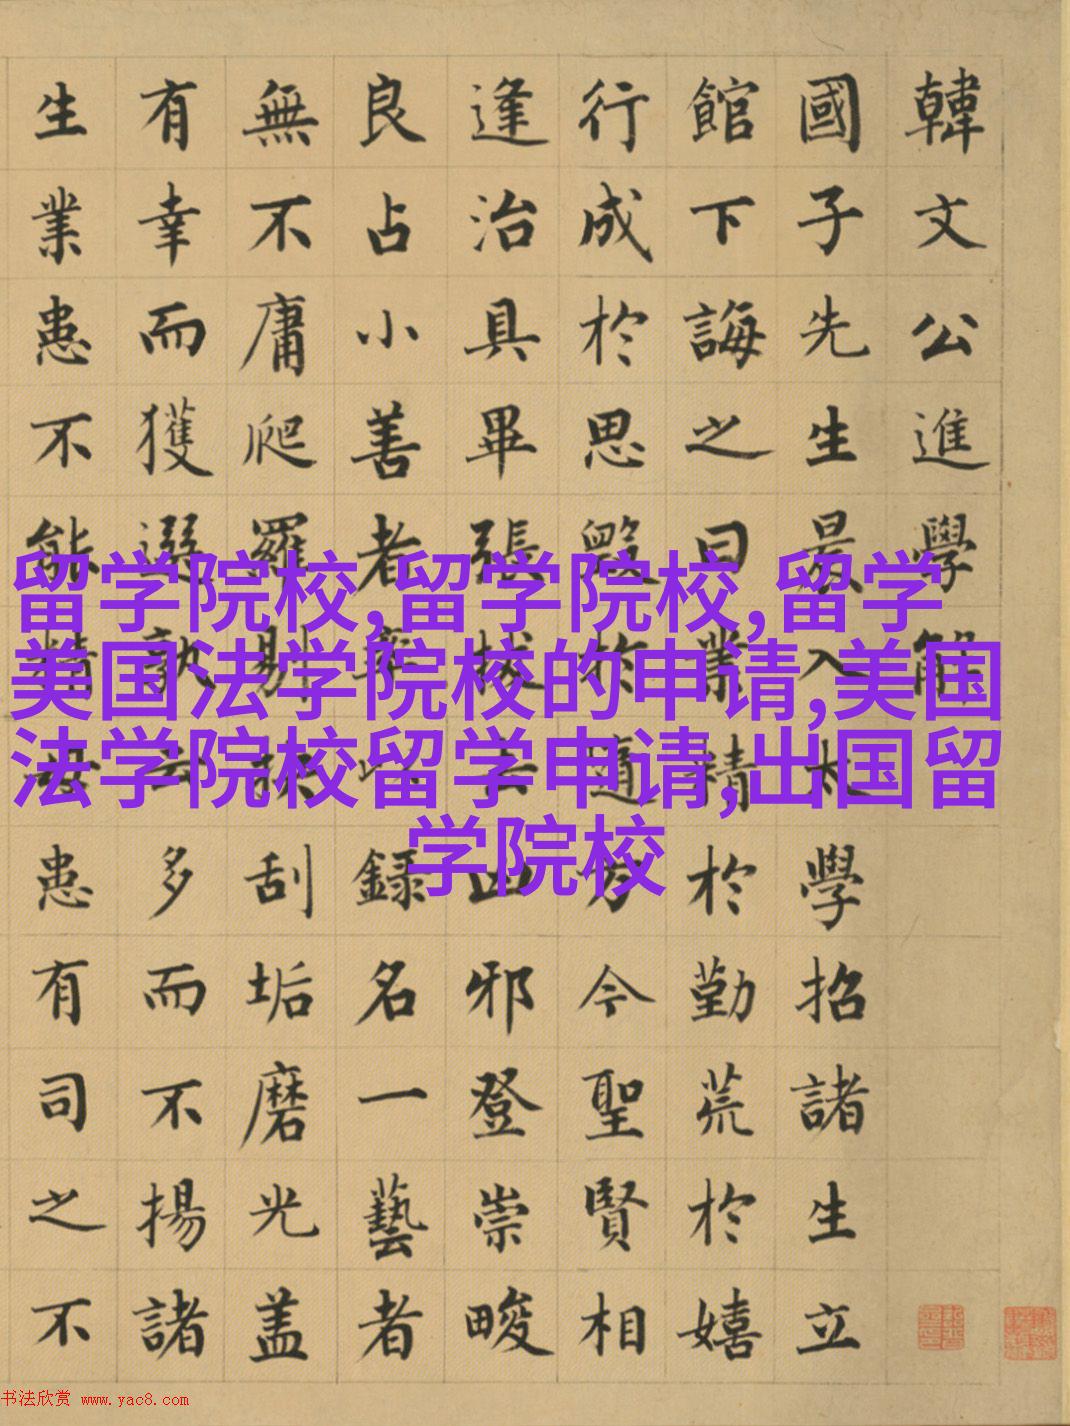 韓文公進學解
國子先生晨入太學招諸生立
館下誨之曰業精於勤荒於嬉
行成於思毀於隨方今聖賢相
逢治具畢張拔去凶邪登崇畯
良占小善者率以錄名一藝者
無不庸爬羅剔抉刮垢磨光盖
有幸而獲選孰云多而不揚諸
生業患不能精患有司之不
留学院校,留学院校,留学
美国法学院校的申请,美国
法学院校留学申请,出国留
学院校
书法欣赏 www.yac8.com